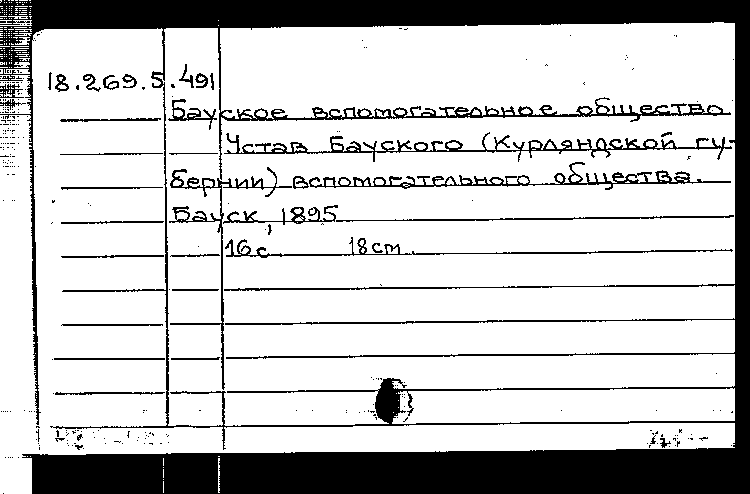 18.269.5.491
Бауское вспомогательное общество
Устав Бауского (Курляндской гу-
бернии) вспомогательного общества.
Бауск, 1895
16 с. 18 см.